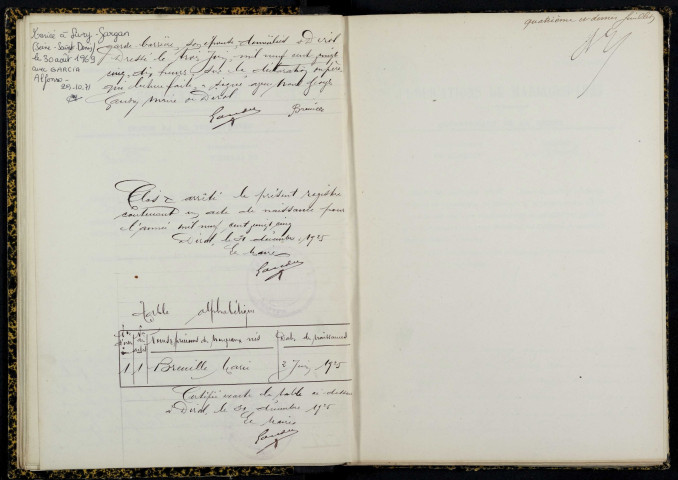 Mariée à Livry-Gargan
(Seine-Saint-Denis)
le 30 août 1969
avec GARCIA
Alfonso -
garde-barrière, son épouse, domiciliés à Dirol
Dressé le trois Juin, mil neuf cent vingt
cinq, dix heures, sur la déclaration du père
qui lecture faite, a signé avec nous
Maire de Dirol
Breuille
Clos & arrêté le présent registre
contenant un acte de naissance pour
l'année mil neuf cent vingt cinq
à Dirol, le 31 décembre 1925
Le Maire
Table alphabétique
Noms, prénoms du nouveau né
Date de naissance
1 1 Breuille Marie 2 Juin 1925
Certifié exacte la table ci-dessus
à Dirol le 31 décembre 1925
Le Maire
quatrième et dernier feuillet